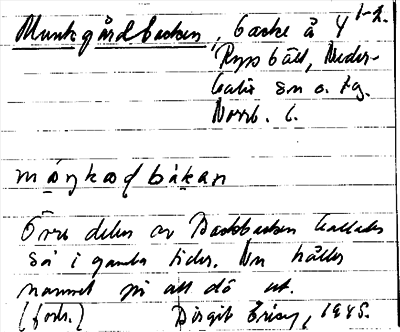 Munkgårdbacken, backe å Y 1-2.
Ryssbält, Neder-
kalix sn o. tg.
Norrb. l.
Övre delen av Backbacken kallades
så i gamla tider. Nu håller
namnet på att dö ut.
(forts.) Birgit 1985.